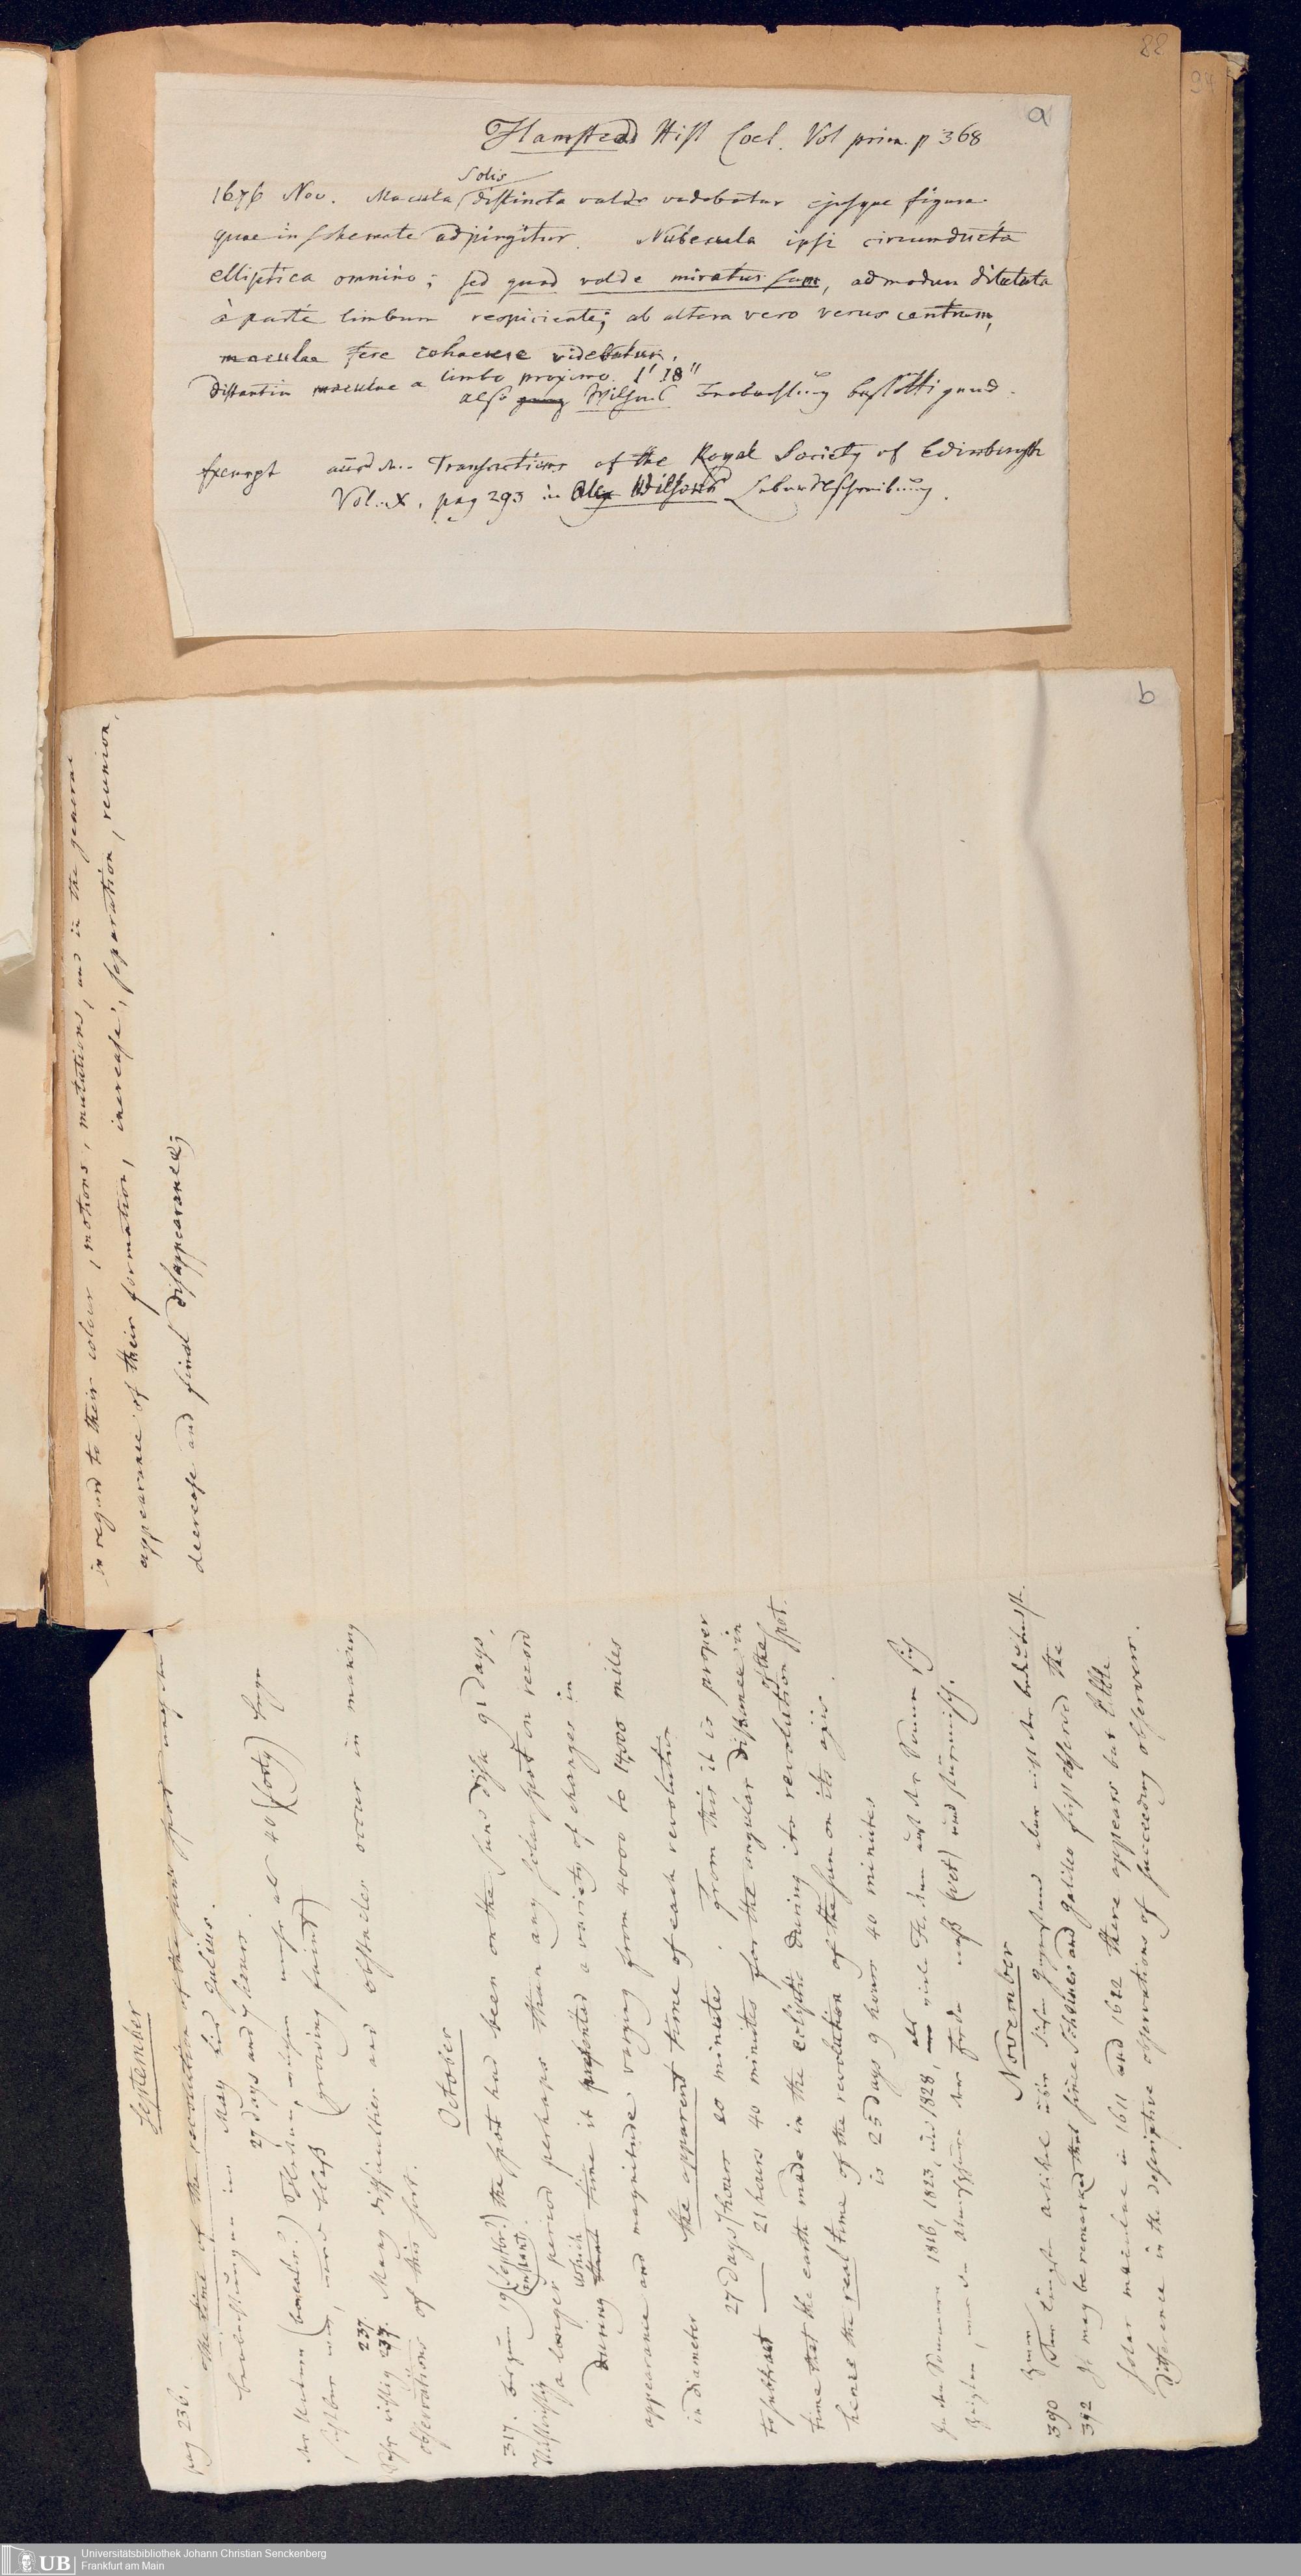 88
94
a
Flamstead Hist Coel. Vol prim. p 368
Solis
1676 Nov. Macula distincta valde videbatur ejusque figura
quae in schemate adpingitur. Nubecula ipsi circumducta
elliptica omnino; sed quod valde miratus sum, admodum dilatata
à parte limbum respiciente; ab altera vero versus centrum,
maculae fere cohaerere videbatur.
Distantia maculae a limbo proximo 1' 18"
also ganz Wilsons Beobachtung bestättigend.
Excerpt aus d. Transactions of the Royal Society of Edinburgh
Vol. X, pag 293 in Alex Wilsons Lebensbeschreibung.
b
in regard to their colour, motions, mutations, and in the general
appearance of their formation, increase, separation, reunion,
decrease and final disappearance;
September
pag 236. the time of the revolution of the suns spot nach den
Beobachtungen im May bis Julius.
27 days and 7 hours.
der Medium (breaker?) Flecken, mehr als 40 (forty) Tage
sichtbar war, ward blaß (growing faint)
237.
Sehr richtig 237. Many difficulties and obstacles occur in making
observations of this sort.
October
317. begin 19 (Septbr?) the spot had been on the suns disk 91 days,
(instant)
a longer period perhaps than any solar spot on record
which
During that time it presented a variety of changes in
appearance and magnitude varying from 4000 to 14,000 miles
in diameter
the apparent time of each revolution
27 days 7 hour 20 minutes. From this it is proper
to subtract — 21 hours 40 minutes for the angular distance in
of the
time that the earth made in the ecliptic during its revolution spot.
hence the real time of the revolution of the sun on its axis
is 25 days 9 hours 40 minutes
In den Sommern 1816, 1823, und 1828, als viele Flecken auf der Sonne sich
zeigten, war die Atmosphäre der Erde naß (wet) und stürmisch.
November
390 Ihren längsten Artikel über diesen Gegenstand aber nicht den bedeutendsten.
392 It may be remarked that since Scheiner and Galileo first observed the
solar maculae in 1611 and 1612 there appears but little
difference in the descriptive observations of succeeding observers.
UB Universitätsbibliothek Johann Christian Senckenberg
Frankfurt am Main